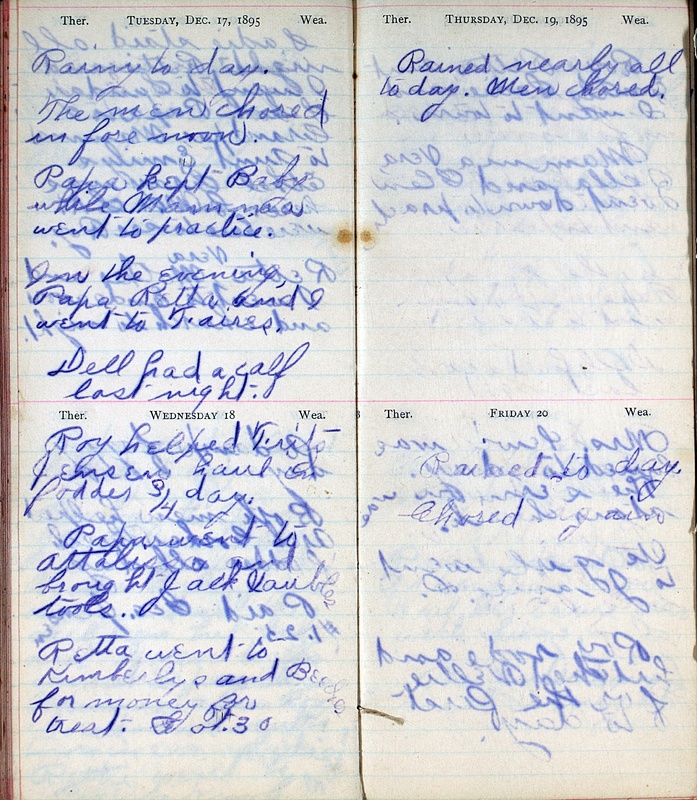 Ther. TUESDAY, DEC. 17, 1895 Wea.
Rainy to day.
The men chored
in fore noon.
Papa kept Baby
while Mamma
went to practice.
In the evening,
Papa Retta and I
went to
Dell had a calf
last night.
Ther. WEDNESDAY 18 Wea.
Roy helped
Jensen haul in
fodder 3/4 day.
Papa went to
Attalissa and
brought Jack
tools.
Retta went to
Kimberlys and
for money for
treat. Got .30
Ther. THURSDAY, DEC. 19, 1895 Wea.
Rained nearly all
to day. Men chored.
Ther. FRIDAY 20 Wea.
Rained to day.
Chored